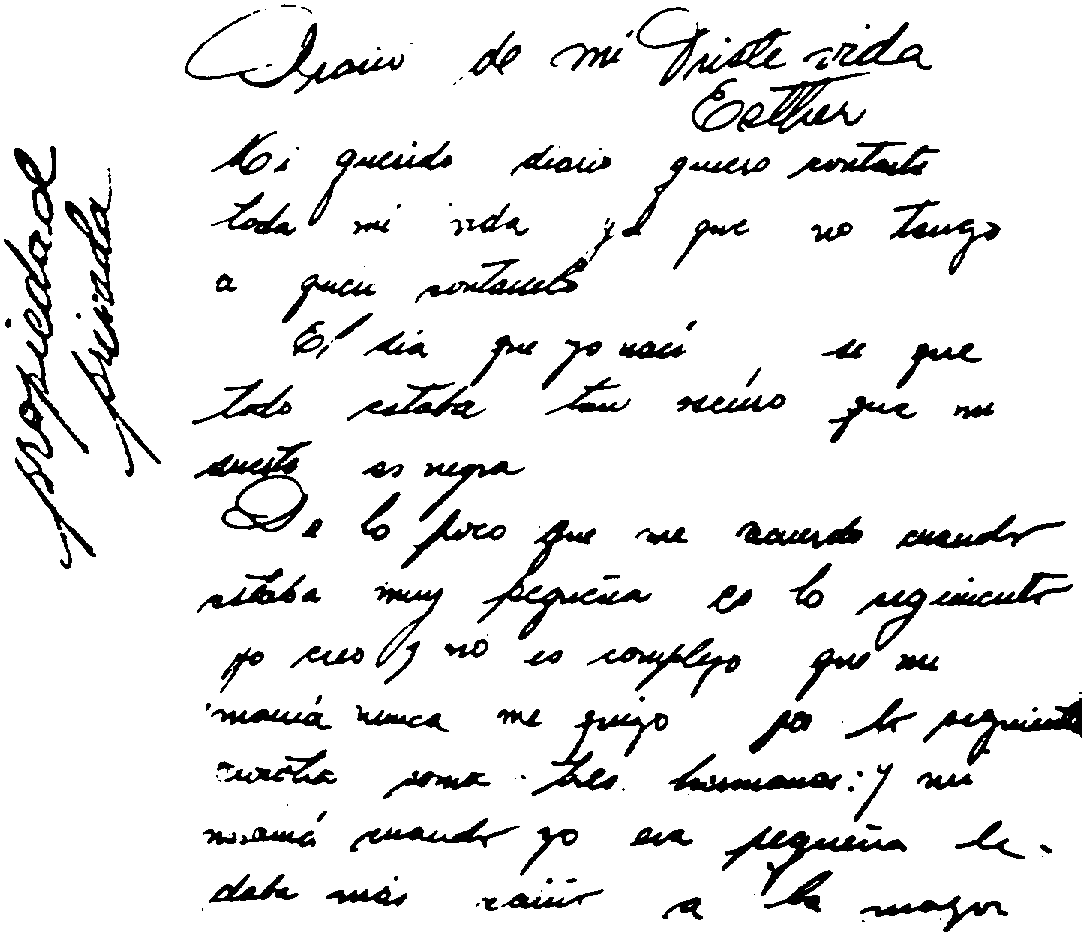 Diario de mi Triste vida
Esther
Mi querido diario quiero contarte
toda mi vida ya que no tengo
a quien contarselo
El dia que yo nací se que
todo estaba tan oscuro que mi
suerte es negra
De lo poco que me acuerdo cuando
estaba muy pequeña es lo seguiente
yo creo y no es complejo que mi
mamá nunca me quizo por lo seguiente
somos tres hermanas: y mi
mamá cuando yo era pequeña le
daba más cariño a la mayor
propiedad
privada